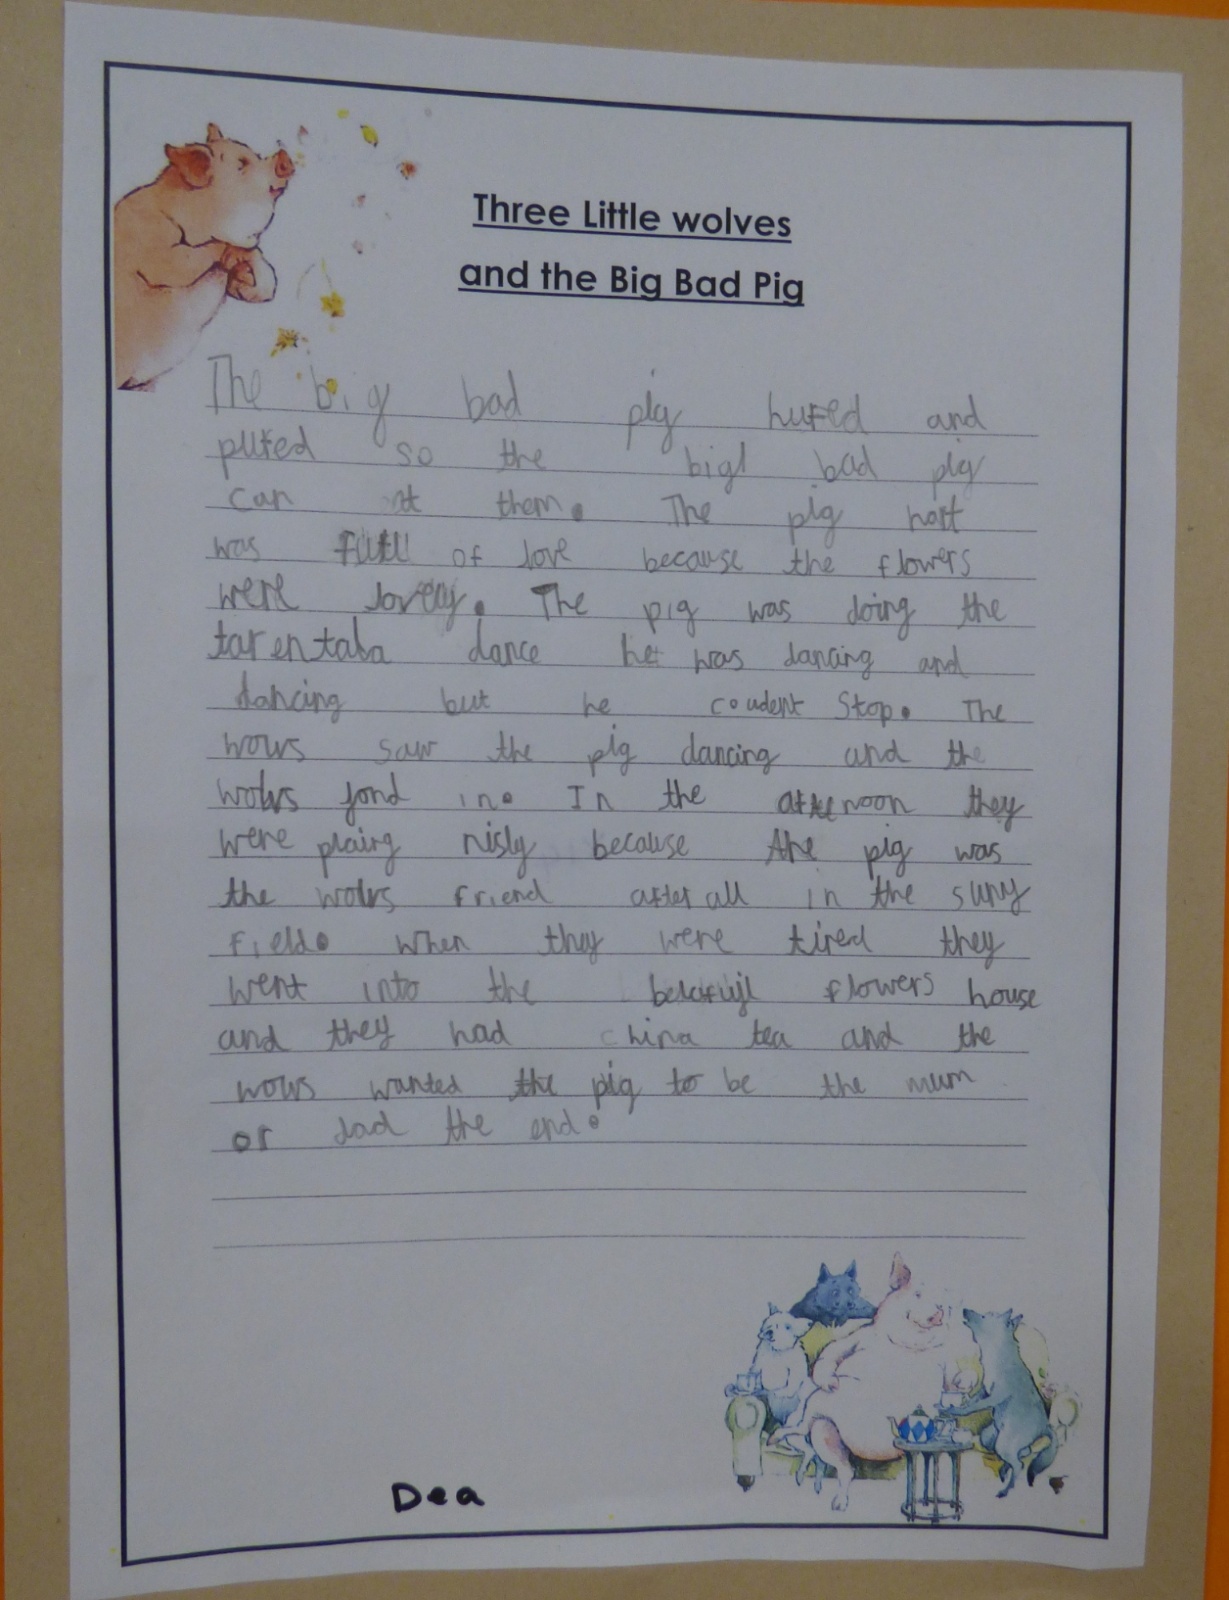 Three Little wolves
and the Big Bad Pig
The big bad pig hufed and
pufed so the bigl bad pig
can at them. The pig hort
was full of love because the flowers
were lovely. The pig was doing the
tarentala dance he was dancing and
dancing but he coudent stop. The
wows saw the pig dancing and the
wolvs jond in. In the afternoon they
were plaing nisly because the pig was
the wolvs friend after all in the suny
field. When they were tired they
went into the flowers house
and they had china tea and the
wows wanted the pig to be the mum
or dad the end.
Dea